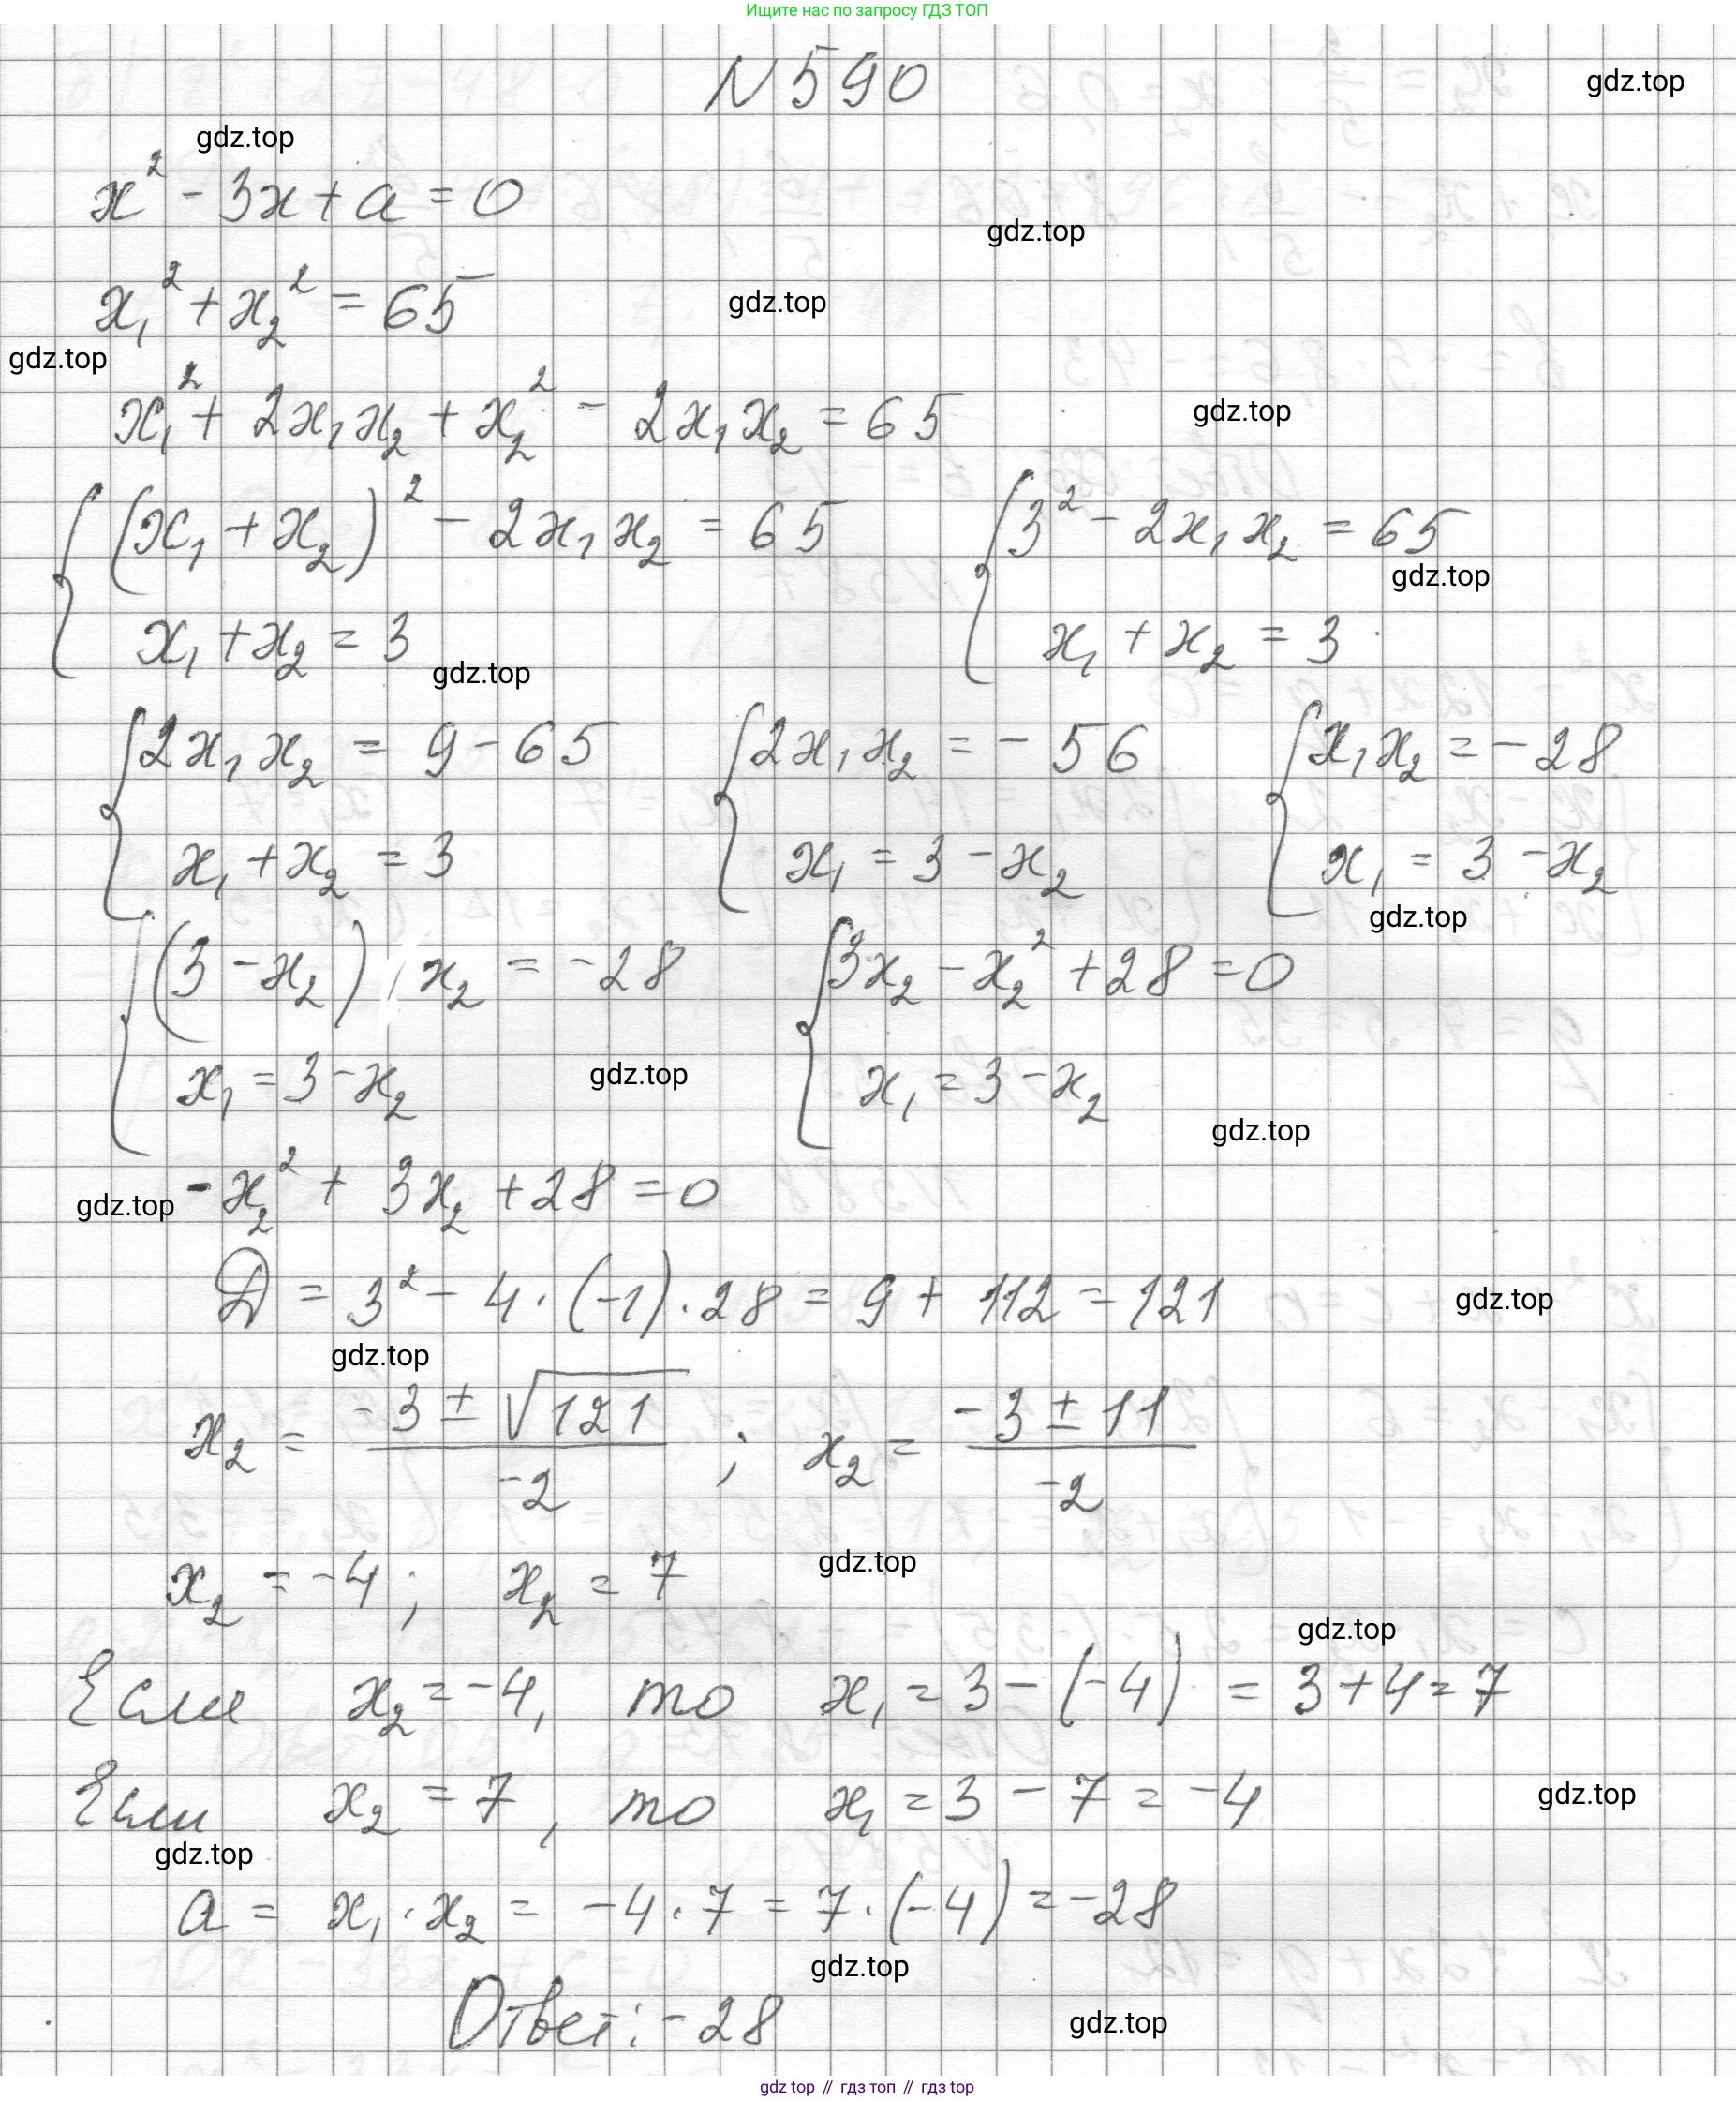 Ищите нас по запросу ГДЗ ТОП
N 590
gdz.top
gdz.top
x² - 3x + a = 0
gdz.top
x₁² + x₂² = 65
gdz.top
gdz.top
x₁² + 2x₁x₂ + x₂² - 2x₁x₂ = 65
gdz.top
{ (x₁ + x₂)² - 2x₁x₂ = 65 { 3² - 2x₁x₂ = 65
gdz.top
x₁ + x₂ = 3 x₁ + x₂ = 3
gdz.top
{ 2x₁x₂ = 9 - 65 { 2x₁x₂ = - 56 { x₁x₂ = - 28
x₁ + x₂ = 3 x₁ = 3 - x₂ x₁ = 3 - x₂
gdz.top
{ (3 - x₂) x₂ = -28 { 3x₂ - x₂² + 28 = 0
x₁ = 3 - x₂ x₁ = 3 - x₂
gdz.top
gdz.top
-x₂² + 3x₂ + 28 = 0
gdz.top
D = 3² - 4 · (-1) · 28 = 9 + 112 = 121
gdz.top
gdz.top
x₂ = (-3 ± √121) / -2 ; x₂ = (-3 ± 11) / -2
x₂ = -4; x₂ = 7
gdz.top
gdz.top
Если x₂ = -4, то x₁ = 3 - (-4) = 3 + 4 = 7
Если x₂ = 7, то x₁ = 3 - 7 = -4
gdz.top
gdz.top
a = x₁ · x₂ = -4 · 7 = 7 · (-4) = -28
gdz.top
Ответ: -28
gdz.top
gdz top // гдз топ // gdz top